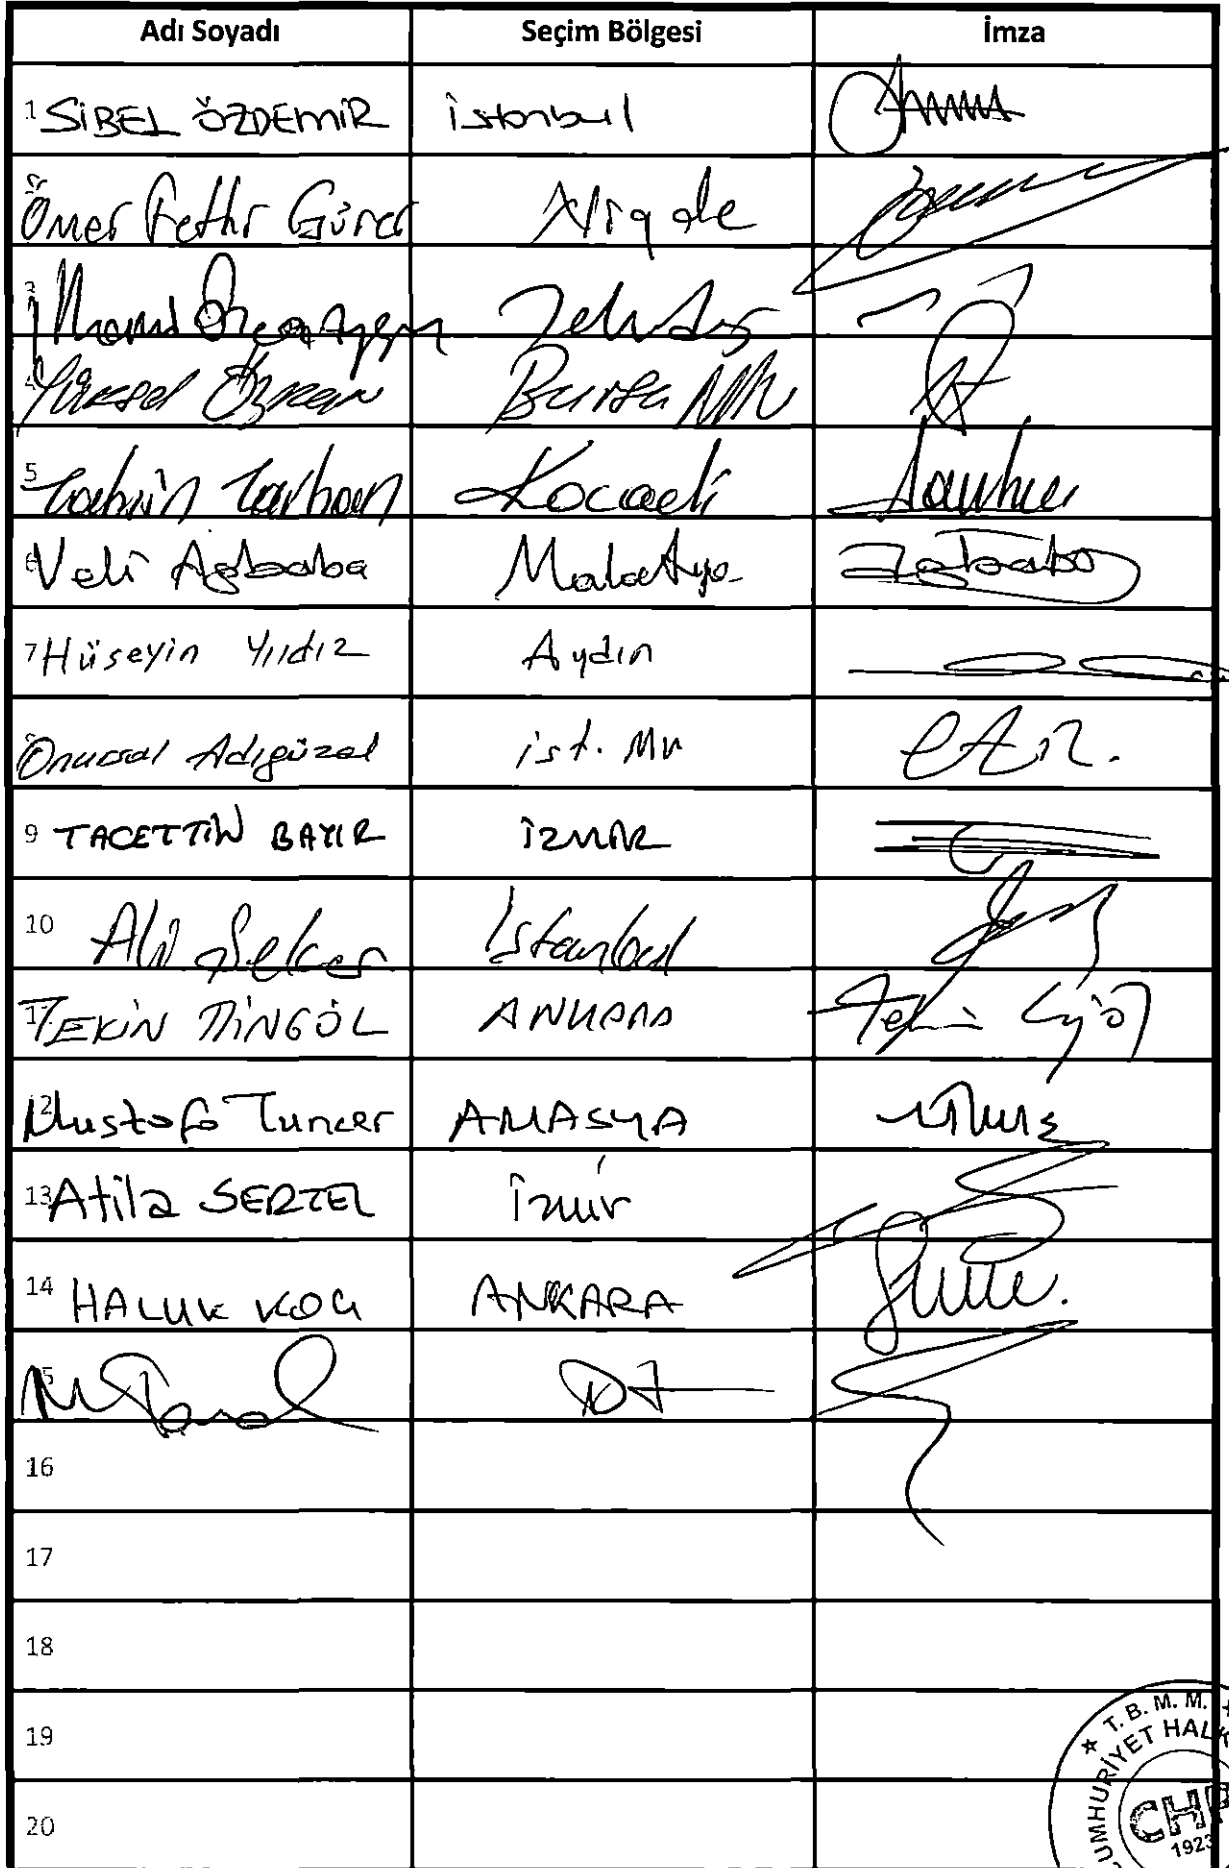 Adı Soyadı Seçim Bölgesi İmza
1 SİBEL ÖZDEMİR İstanbul
Ömer Fethi Gürer Niğde
3 İlhami Özcan Aygun Tekirdağ
4 Yüksel Özkan Bursa Mv
5 Tahsin Tarhan Kocaeli Tarhan
6 Veli Ağbaba Malatya Ağbaba
7 Hüseyin Yıldız Aydın
Onursal Adıgüzel ist. Mv
9 TACETTİN BAYIR İZMİR
10 Ali Şeker İstanbul
11 TEKİN BİNGÖL ANKARA
12 Mustafa Tuncer AMASYA
13 Atila SERTEL İzmir
14 HALUK KOÇ ANKARA
15
16
17
18
19
20
★ T. B. M. M. ★
CUMHURİYET HALK
CHP
1923